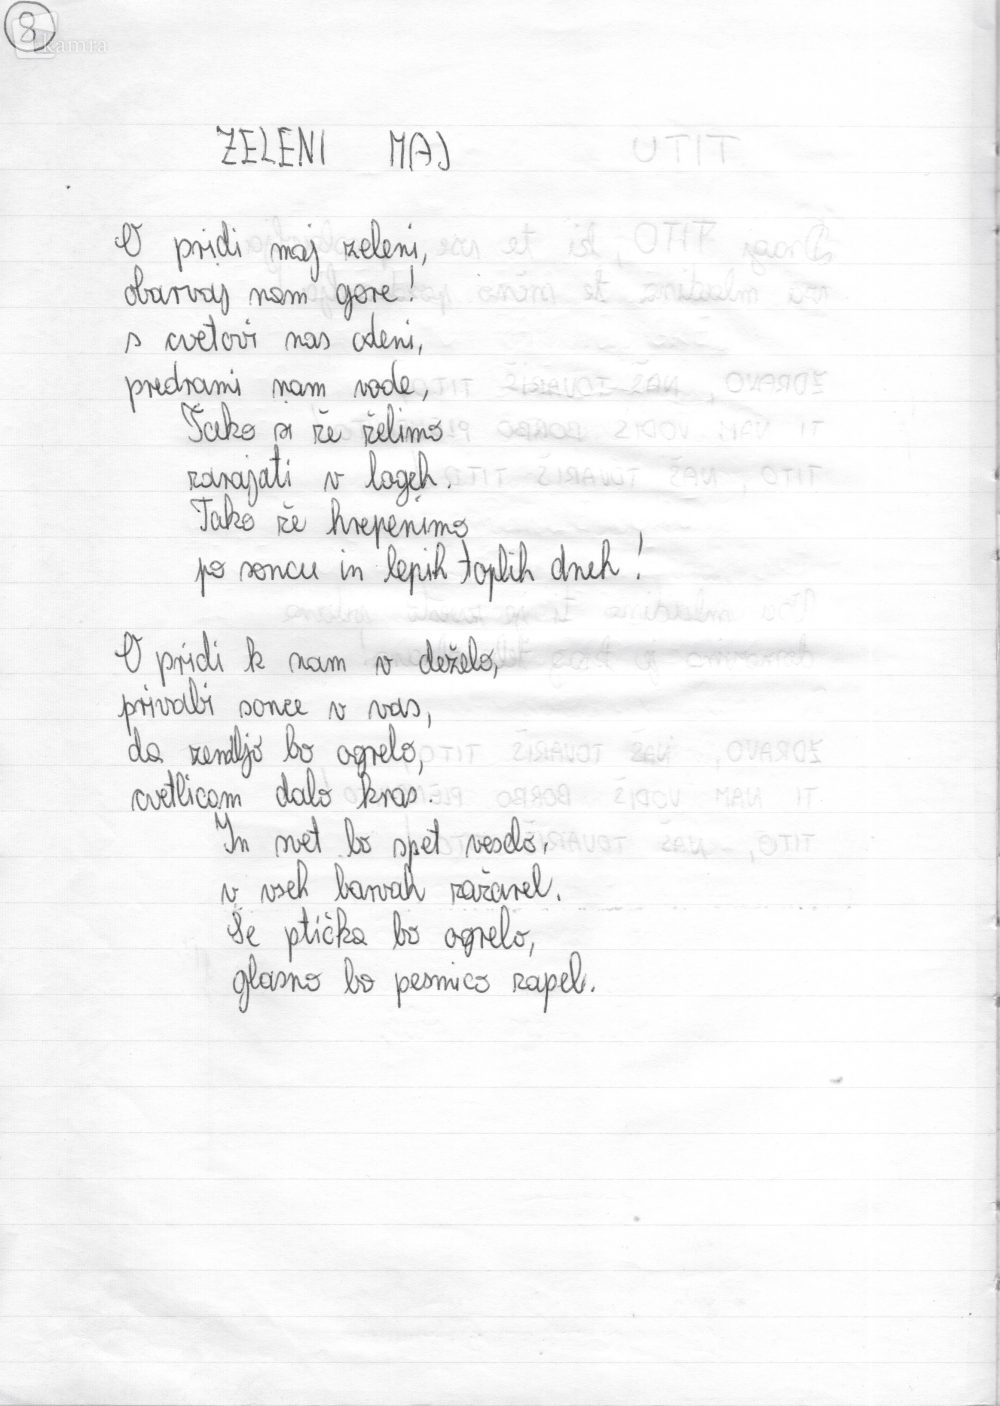 8
kamra
ZELENI MAJ
O pridi maj zeleni,
obarvaj nam gore!
s cvetovi nas odeni,
predrami nam vode,
Tako si že želimo
zarajati v logeh.
Tako že hrepenimo
po soncu in lepih toplih dneh!
O pridi k nam v deželo,
privabi sonce v vas,
da zemljo bo ogrelo,
cvetlicam dalo kras.
In svet bo spet veselo,
v vseh barvah zažarel.
Še ptička bo ogrelo,
glasno bo pesmico zapel.